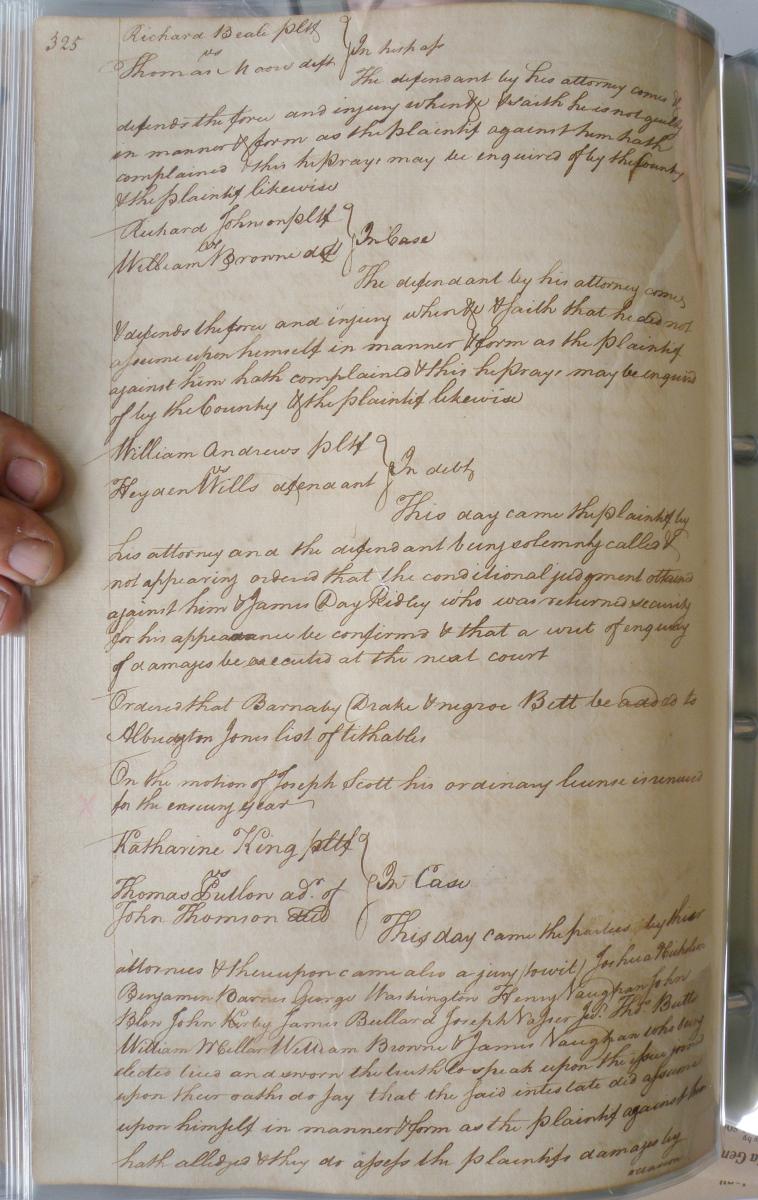 325
Richard Beale pltf
vs
Thomas Moore deft
In trespass
The defendant by his attorney comes &
defends the force and injury when &c & saith he is not guilty
in manner & form as the plaintif against him hath
complained & this he prays may be enquired of by the County
& the plaintif likewise
Richard Johnson pltf
vs
William Browne deft
In Case
The defendant by his attorney comes
& defends the force and injury when &c & saith that he did not
assume upon himself in manner & form as the plaintif
against him hath complained & this he prays may be enquired
of by the County & the plaintif likewise
William Andrews pltf
vs
Heyden Wills defendant
In debt
This day came the plaintif by
his attorney and the defendant being solemnly called &
not appearing ordered that the conditional judgment obtained
against him & James Day Ridley who was returned security
for his appearance be confirmed & that a writ of enquiry
of damages be executed at the next court
Ordered that Barnaby Drake & negroe Bett be added to
Albridgton Jones list of tithables
On the motion of Joseph Scott his ordinary license is renewed
for the ensuing year
X
Katharine King pltf
vs
Thomas Pullon adr. of
John Thomson decd
In Case
This day came the parties by their
attornies & thereupon came also a jury (to wit) Joshua Nicholson
Benjamin Barnes George Washington Henry Vaughan John
Blow John Kirby James Bullard Joseph Vasser Jr. Thos. Butts
William McCellar William Browne & James Vaughan who being
elected tried and sworn the truth to speak upon the issue joined
upon their oaths do say that the said intestate did assume
upon himself in manner & form as the plaintif against him
hath alledged & they do assess the plaintifs damages by
occasion
a Gen